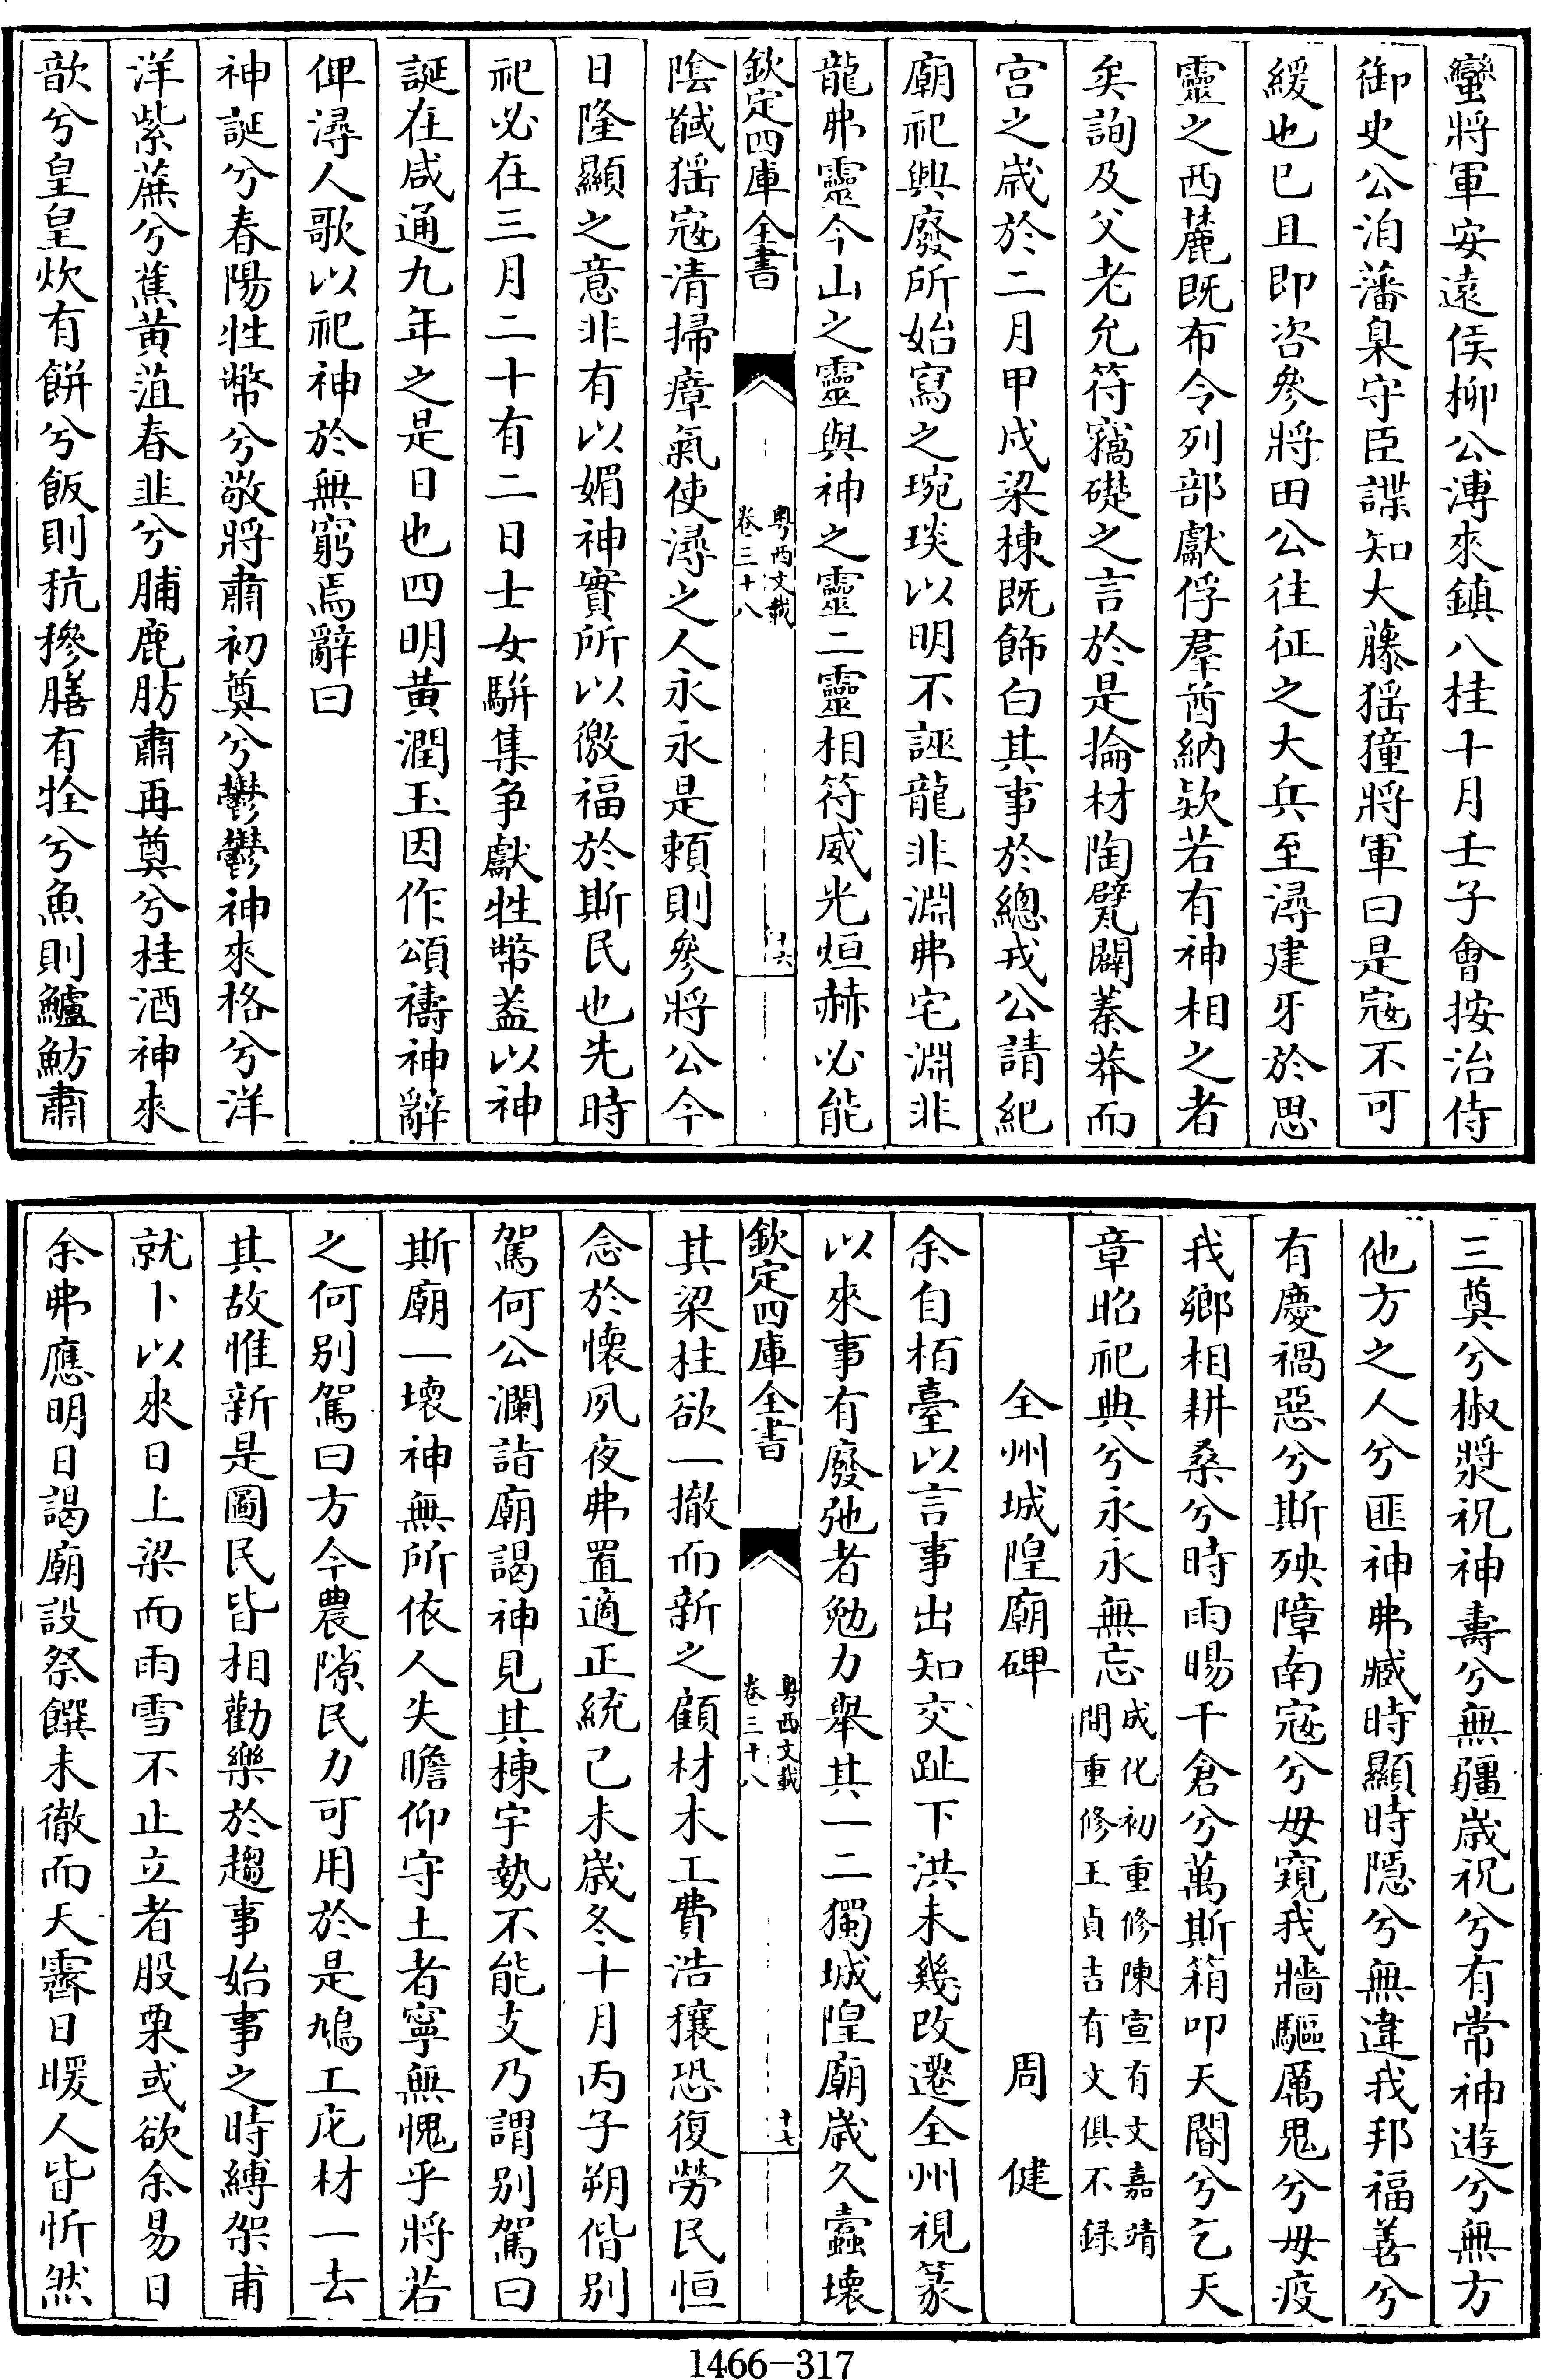 蠻將軍安遠侯柳公溥來鎮八桂十月壬子會按治侍
御史公洎藩臬守臣諜知大藤猺獞將軍曰是寇不可
緩也已且即咨參將田公往征之大兵至潯建牙於思
靈之西麓既布令列部獻俘羣酋納欵若有神相之者
矣詢及父老允符竊礎之言於是掄材陶甓闢蓁莽而
宫之歲於二月甲戌梁棟既飾白其事於總戎公請紀
廟祀興廢所始寫之琬琰以明不誣龍非淵弗宅淵非
龍弗靈今山之靈與神之靈二靈相符威光烜赫必能
欽定四庫全書
粤西文載
卷三十八
十六
陰馘猺寇清掃瘴氣使潯之人永永是頼則參將公今
日隆顯之意非有以媚神實所以徼福於斯民也先時
祀必在三月二十有二日士女駢集争獻牲幣蓋以神
誕在咸通九年之是日也四明黄潤玉因作頌禱神辭
俾潯人歌以祀神於無窮焉辭曰
神誕兮春陽牲幣兮敬將肅初奠兮鬱鬱神來格兮洋
洋紫䕲兮蕉黄菹春韭兮脯鹿肪肅再奠兮桂酒神來
歆兮皇皇炊有餅兮飯則秔穇膳有牷兮魚則鱸魴肅
三奠兮椒漿祝神壽兮無疆歲祝兮有常神遊兮無方
他方之人兮匪神弗臧時顯時隱兮無違我邦福善兮
有慶禍惡兮斯殃障南寇兮毋窺我牆驅厲鬼兮毋疫
我鄉相耕桑兮時雨暘千倉兮萬斯箱叩天閽兮乞天
章昭祀典兮永永無忘成化初重修陳宣有文嘉靖
間重修王貞吉有文俱不録
全州城隍廟碑
周健
余自栢臺以言事出知交趾下洪未幾改遷全州視篆
以來事有廢弛者勉力舉其一二獨城隍廟歲久蠧壞
欽定四庫全書
粤西文載
卷三十八
十七
其梁柱欲一撤而新之顧材木工費浩穰恐復勞民恒
念於懷夙夜弗置適正統己未歲冬十月丙子朔偕别
駕何公瀾詣廟謁神見其棟宇勢不能支乃謂别駕曰
斯廟一壞神無所依人失瞻仰守土者寧無愧乎將若
之何别駕曰方今農隙民力可用於是鳩工庀材一去
其故惟新是圖民皆相勸樂於趨事始事之時縛架甫
就卜以來日上梁而雨雪不止立者股栗或欲余易日
余弗應明日謁廟設祭饌未徹而天霽日暖人皆忻然
1466-317